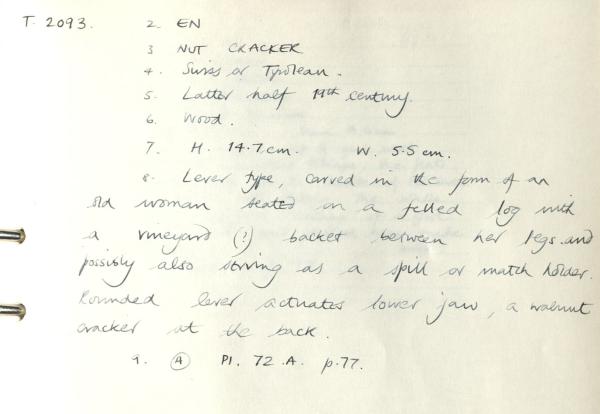 T. 2093. 2. EN
3 NUT CRACKER
4. Swiss or Tyrolean.
5. Latter half 19th century.
6. Wood.
7. H. 14.7cm. W. 5.5cm.
8. Lever type, carved in the form of an
old woman seated on a felled log with
a vineyard (?) basket between her legs and
possibly also serving as a spill or match holder.
Rounded lever actuates lower jaw, a walnut
cracker at the back.
9. (4) Pl. 72.A. p.77.